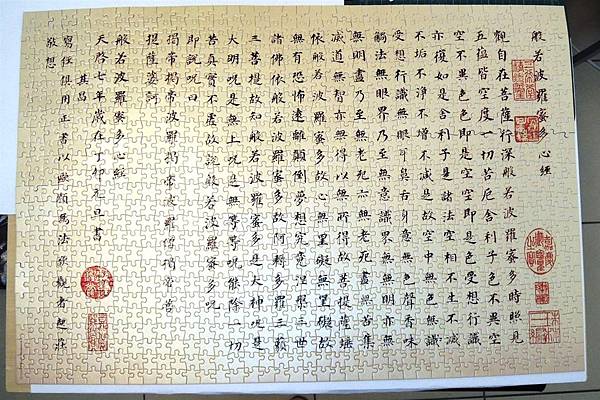 般若波羅蜜多心經
觀自在菩薩行深般若波羅蜜多時照見
五蘊皆空度一切苦厄舍利子色不異空
空不異色色即是空空即是色受想行識
亦復如是舍利子是諸法空相不生不滅
不垢不淨不增不減是故空中無色無識
受想行識無眼耳鼻舌身意無色聲香味
觸法無眼界乃至無意識界無無明亦無
無明盡乃至無老死亦無老死盡無苦集
滅道無智亦無得以無所得故菩提薩埵
依般若波羅蜜多故心無罣礙無罣礙故
無有恐怖遠離顛倒夢想究竟涅槃三世
諸佛依般若波羅蜜多故阿耨多羅三藐
三菩提故知般若波羅蜜多是大神咒是
大明咒是無上咒是無等等咒能除一切
苦真實不虛故說般若波羅蜜多咒
即說咒曰
揭帝揭帝波羅揭帝波羅僧揭帝菩
提薩婆訶
般若波羅蜜多心經
天啟七年歲在丁卯元旦書
其昌
寫經俱用正書以歐顏為法欲觀者起莊
敬想